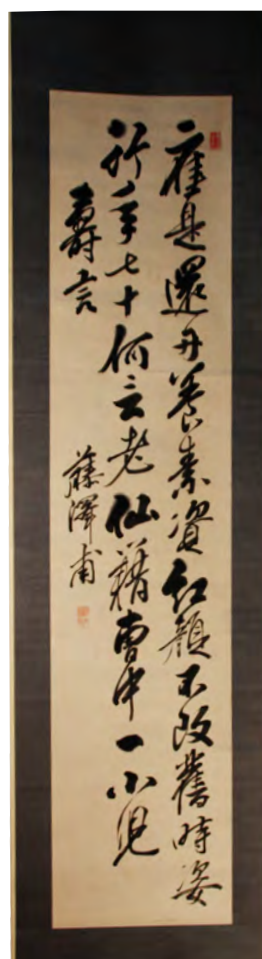 應是還丹養素資紅顏不改舊時姿
行年七十何云老仙籍曹中一小兒
壽言 藤澤甫